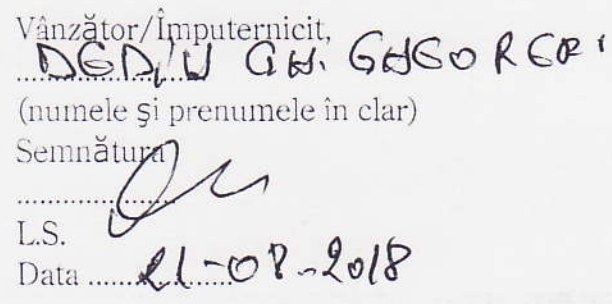 Vânzător/Împuternicit,
DEDIU GH. GHEORGHE
(numele și prenumele în clar)
Semnătura
....................
L.S.
Data ........21-08-2018